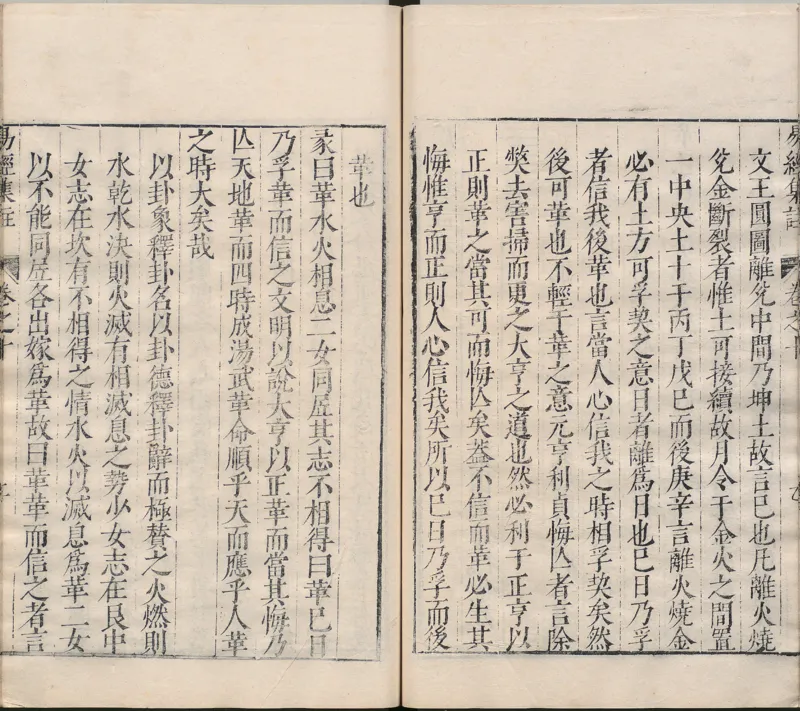 文王圓圖離兌中間乃坤土故言巳也凡離火燒
兌金斷裂者惟土可接續故月令于金火之間置
一中央土十干丙丁戊巳而後庚辛言離火燒金
必有土方可孚契之意日者離爲日也巳日乃孚
者信我後革也言當人心信我之時相孚契矣然
後可革也不輕于革之意元亨利貞悔亾者言除
獘去害掃而更之大亨之道也然必利于正亨以
正則革之當其可而悔亾矣葢不信而革必生其
悔惟亨而正則人心信我矣所以巳日乃孚而後
革也
彖曰革水火相息二女同居其志不相得曰革巳日
乃孚革而信之文明以說大亨以正革而當其悔乃
亾天地革而四時成湯武革命順乎天而應乎人革
之時大矣哉
以卦象釋卦名以卦德釋卦辭而極賛之火燃則
水乾水決則火滅有相滅息之勢少女志在艮中
女志在坎有不相得之情水火以滅息爲革二女
以不能同居各出嫁爲革故曰革革而信之者言
易經集註
卷之十